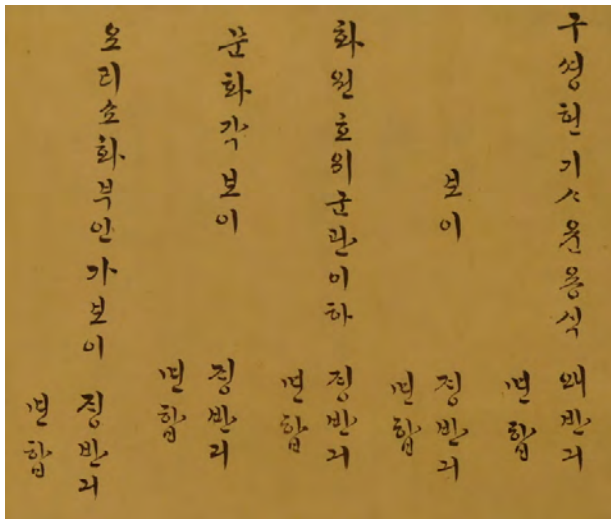 구셩헌기ᄉ운용식 왜반긔
면합
보이 징반긔
면합
화원호위군관이하 징반긔
면합
문화각보이 징반긔
면합
오리쇼화부인가보이 징반긔
면합